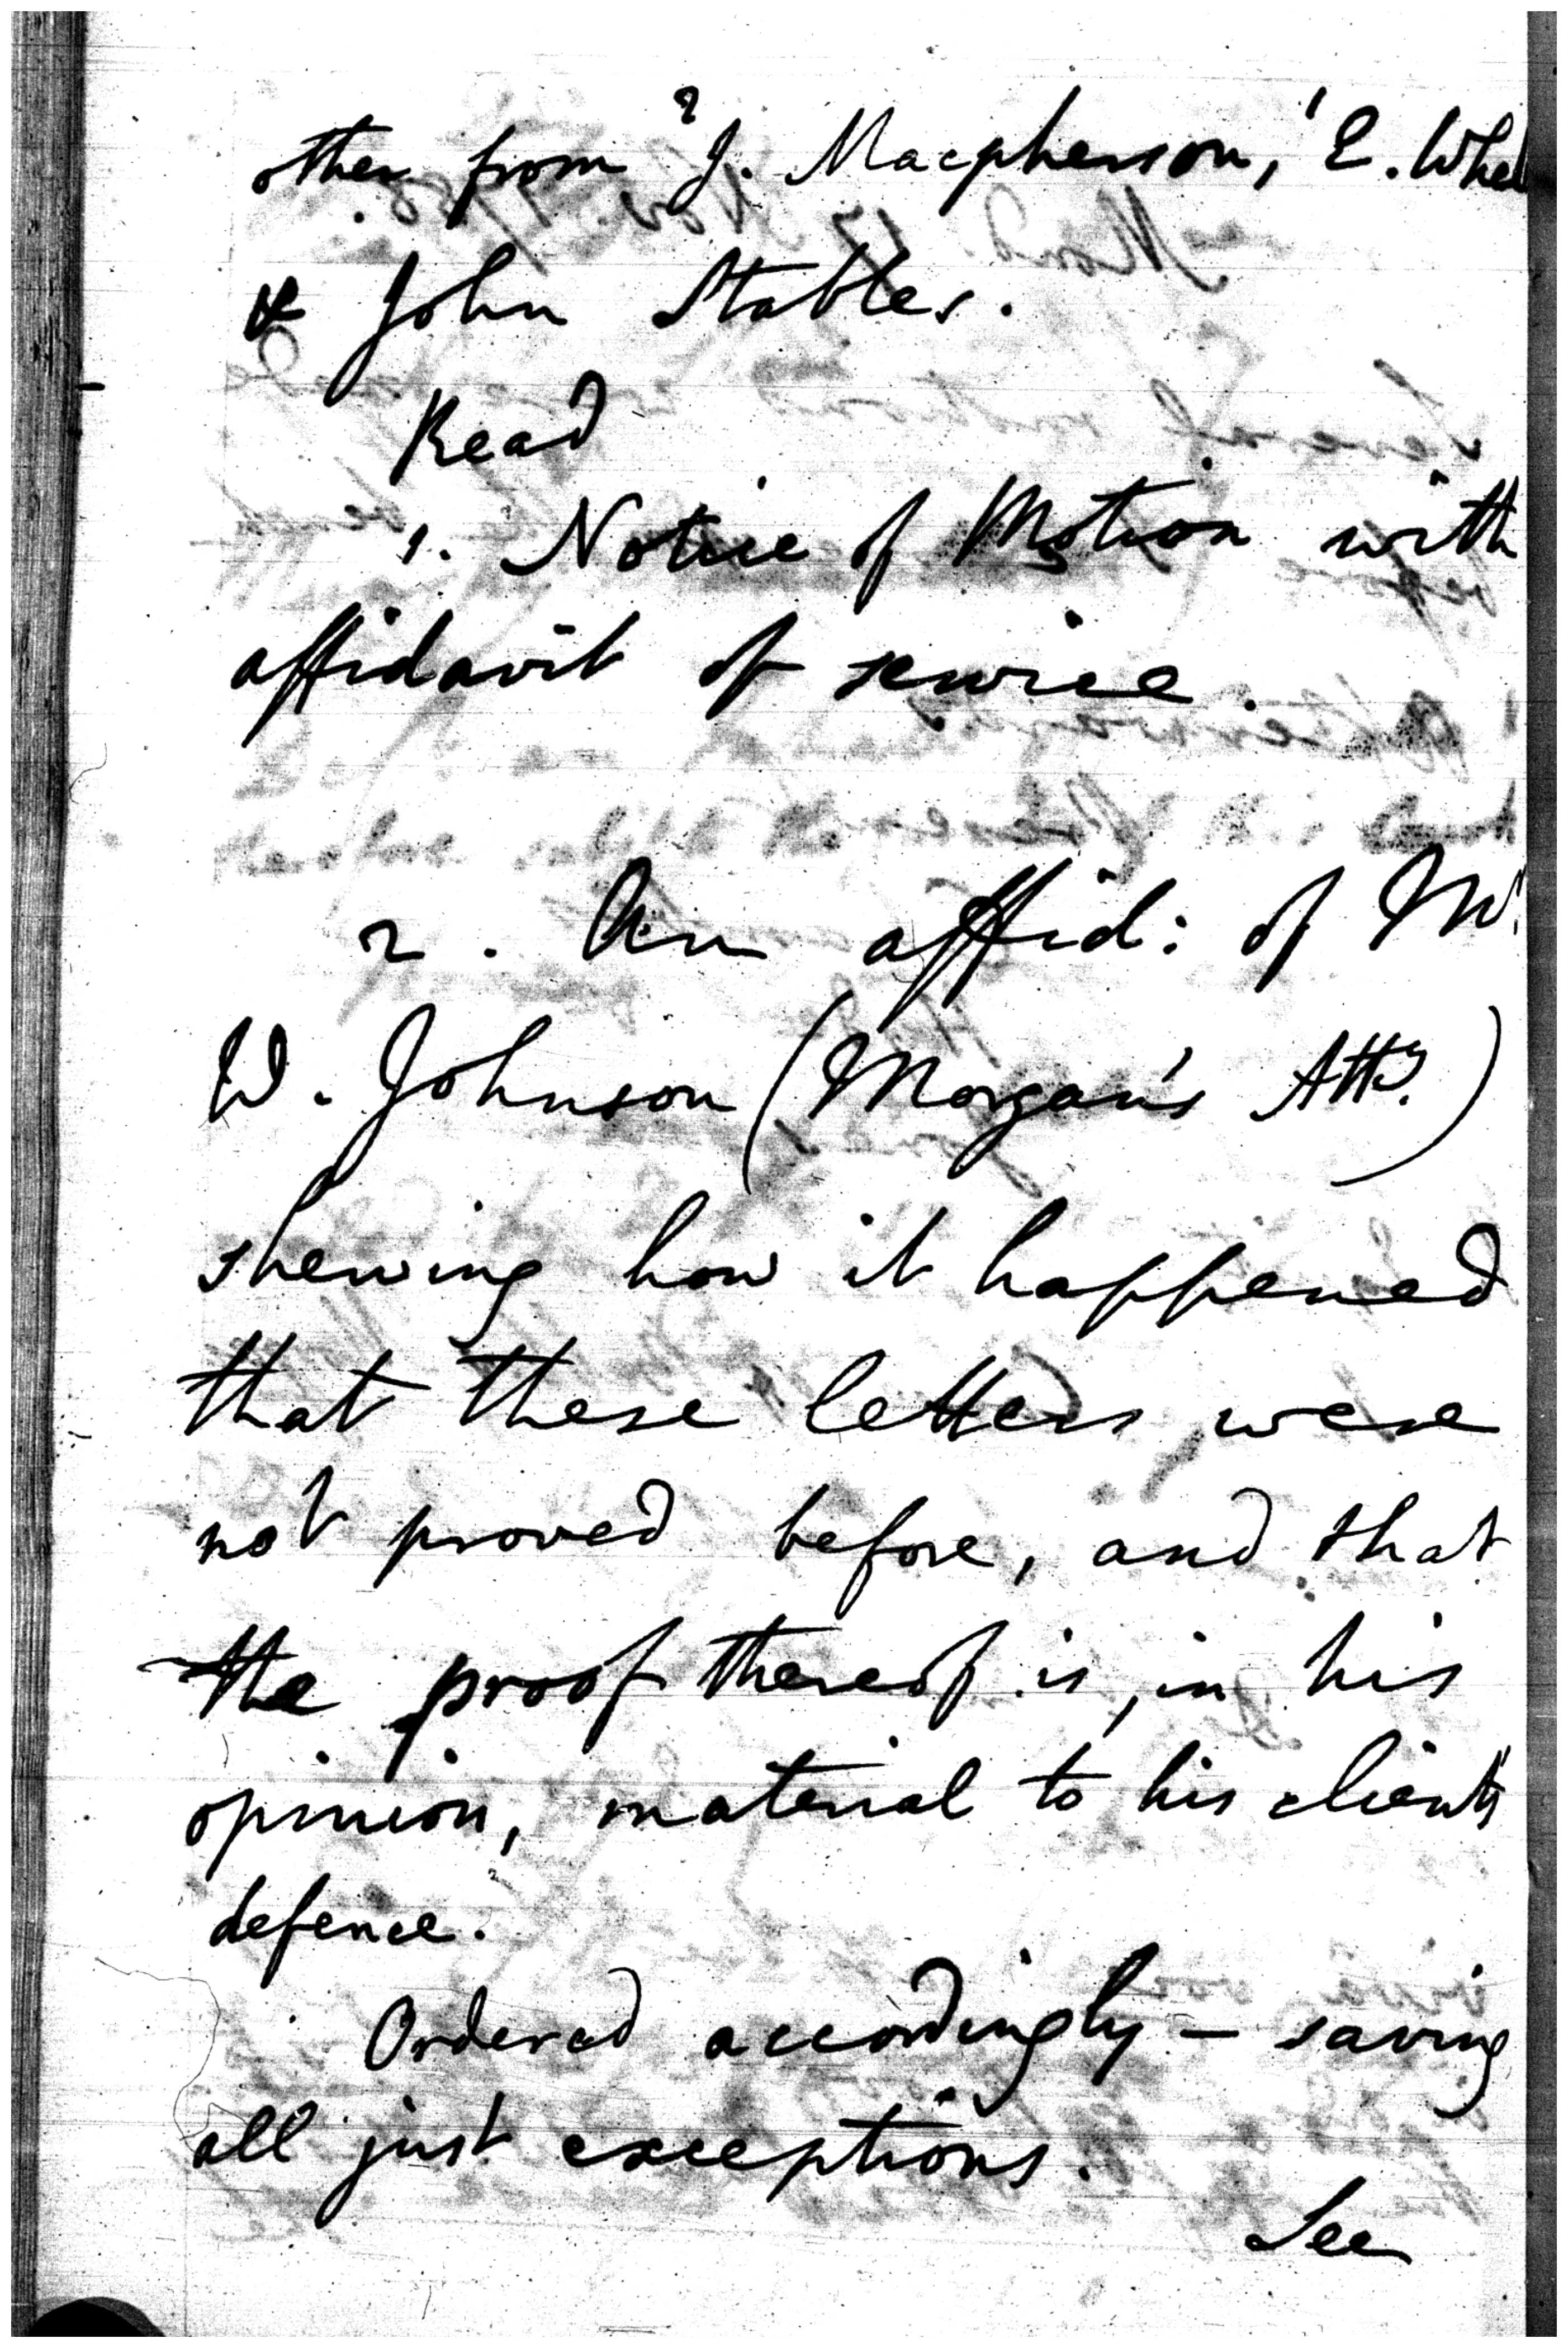 other from ²J. Macpherson, ¹E. Whel
& John Stables.
Read
1. Notice of Motion with
affidavit of service.
2. An affid: of Mr.
W. Johnson (Morgan's Atty.)
shewing how it happened
that these letters were
not proved before, and that
the proof thereof is, in his
opinion, material to his client's
defence.
Ordered accordingly — saving
all just exceptions.
See